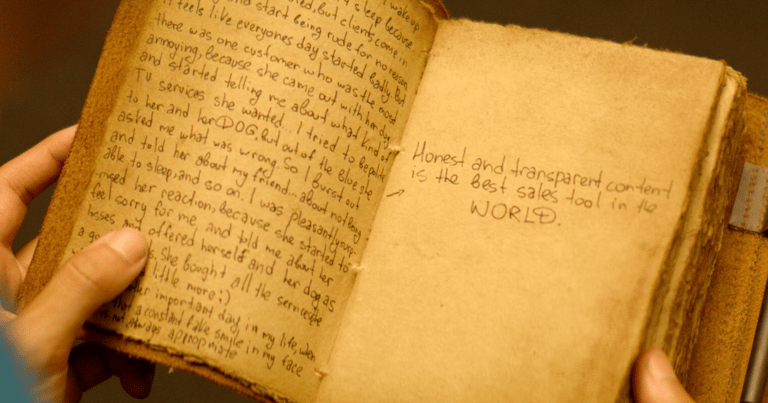 I wake up
sleep because
but clients come in
and start being rude for no reason
feels like everyones day started badly. But
there was one customer who was the most
annoying, because she came out with her dog
and started telling me about what kind of
TV services she wanted... I tried to be polite
to her and her DOG, but out of the blue she
asked me what was wrong. So I burst out
and told her about my friend... about not being
able to sleep, and so on. I was pleasantly surp
rised her reaction, because she started to
feel sorry for me and told me about her
losses and offered herself and her dog as
a go she bought all the services
little more :)
important day, in my life, when
that a constant fake smile in my face
is not always appropriate
Honest and transparent content
is the best sales tool in the
WORLD.